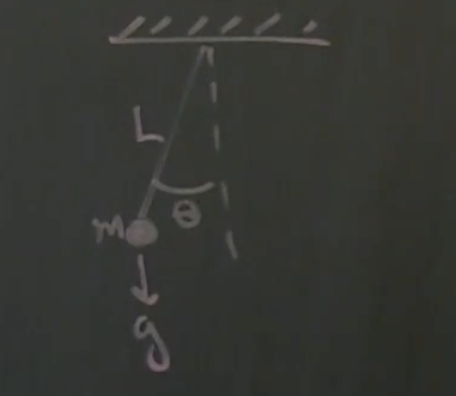 L
θ
m
g